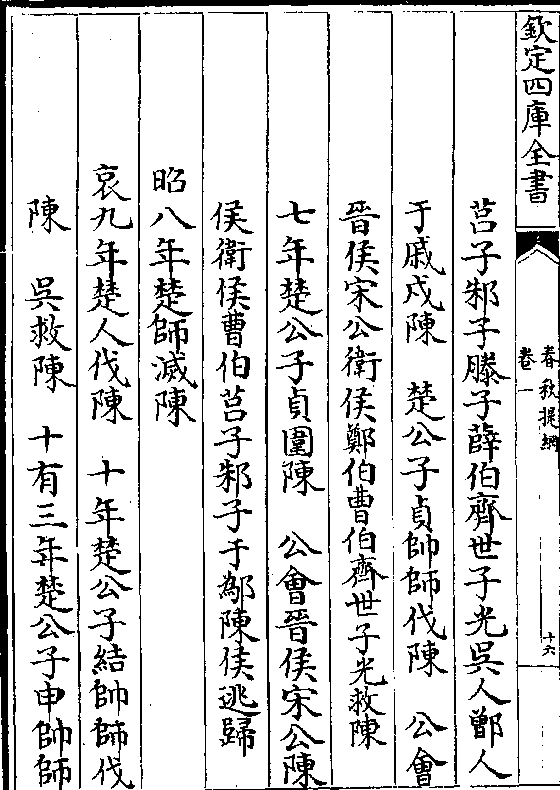 欽定四庫全書
春秋提綱
卷一
十六
莒子邾子滕子薛伯齊世子光吳人鄫人
于戚戍陳　楚公子貞帥師伐陳　公會
晉侯宋公衛侯鄭伯曹伯齊世子光救陳
七年楚公子貞圍陳　公會晉侯宋公陳
侯衛侯曹伯莒子邾子于鄬陳侯逃歸
昭八年楚師滅陳
哀九年楚人伐陳　十年楚公子結帥師伐
陳　吳救陳　十有三年楚公子申帥師